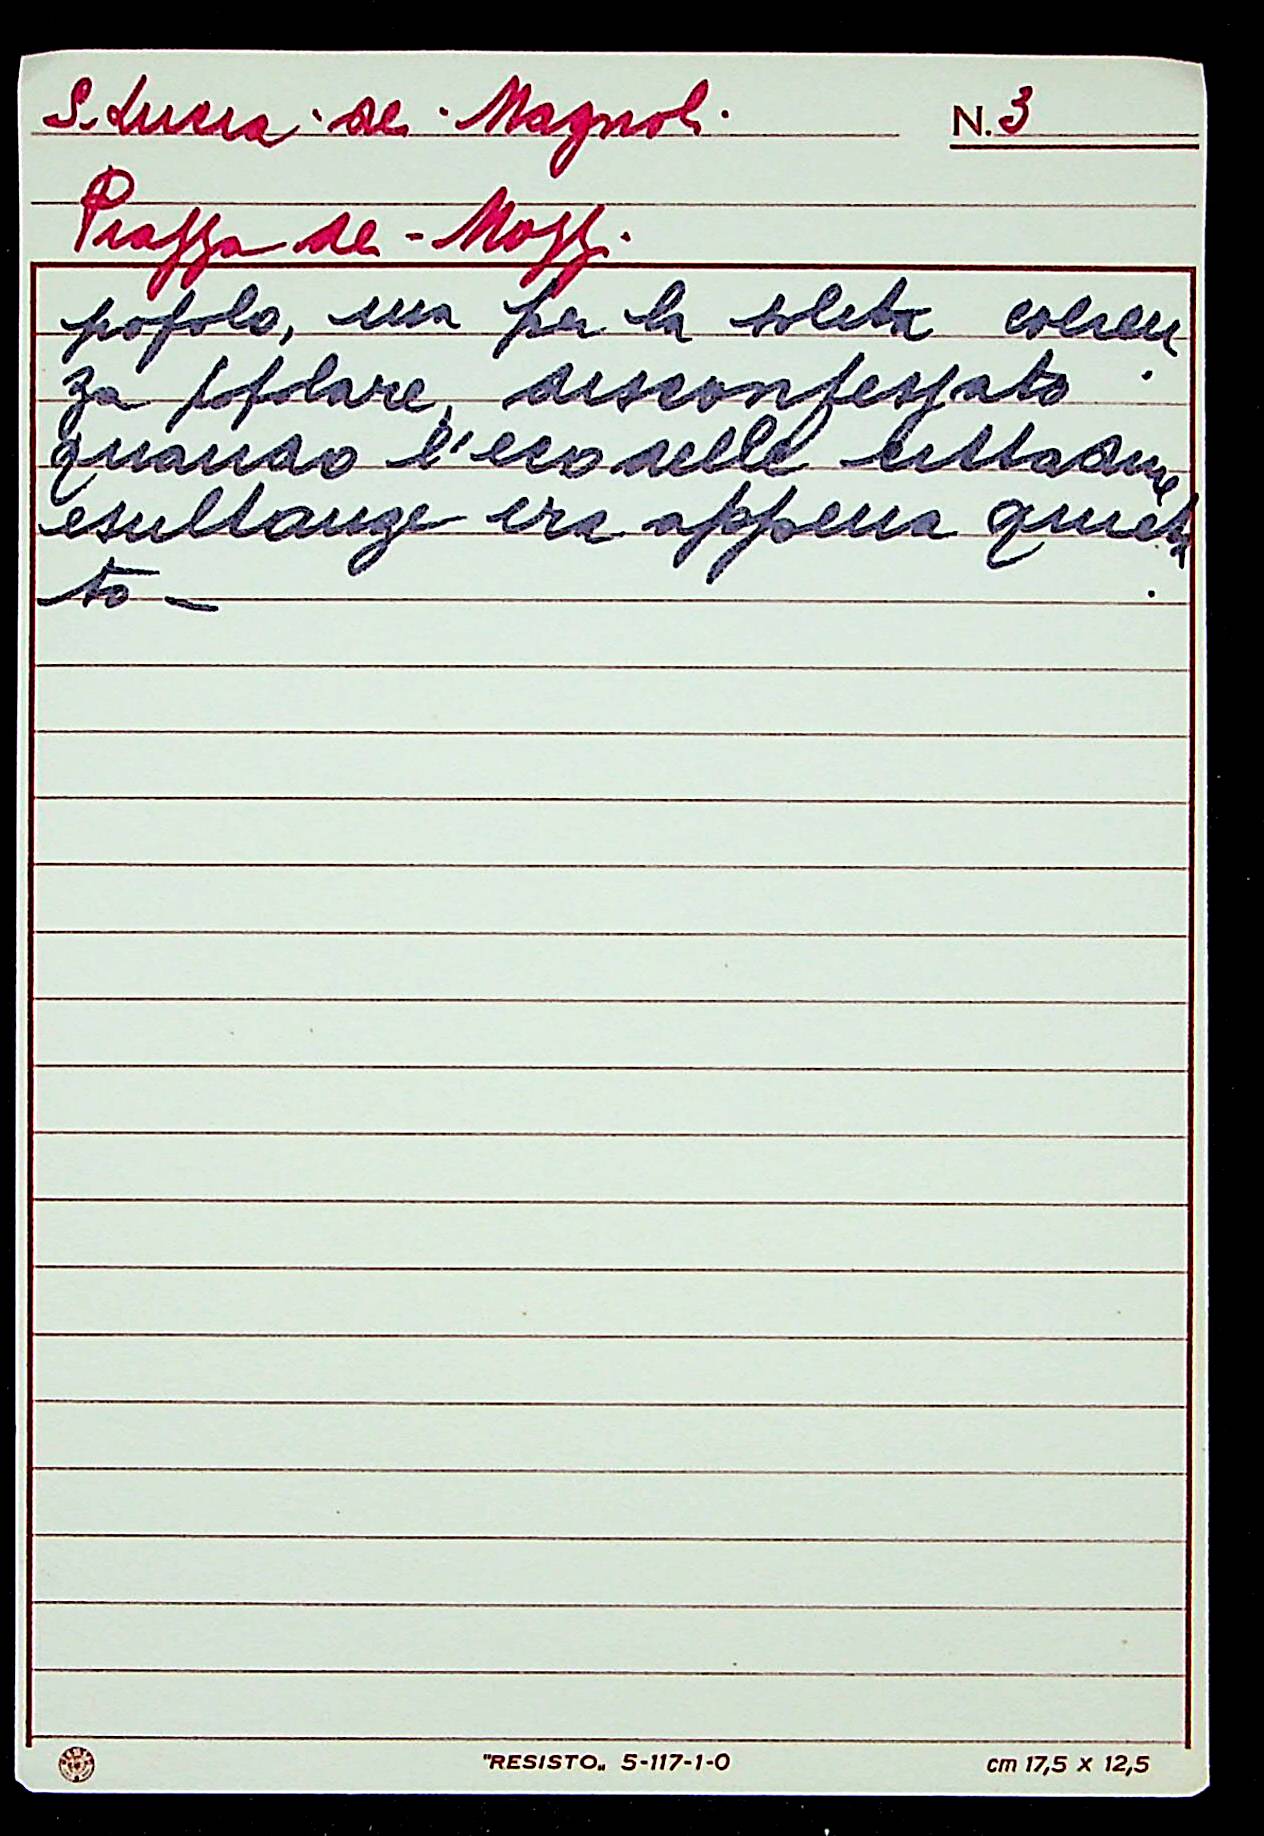 S. Lucia de' Magnoli
N. 3
Piazza de' Mozzi
popolo, ma per la solita coeren
za popolare, disconfessato
quando l'eco delle cittadine
esultanze era appena quieta
to –
"RESISTO„ 5-117-1-0
cm 17,5 x 12,5